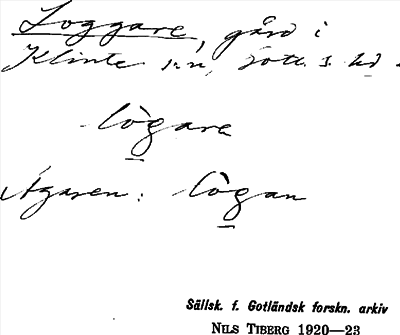 Loggare, gård i
Klinte s:n, Gotl. s. hd
lògare
Ägaren: lògan
Sällsk. f. Gotländsk forskn. arkiv
NILS TIBERG 1920—23